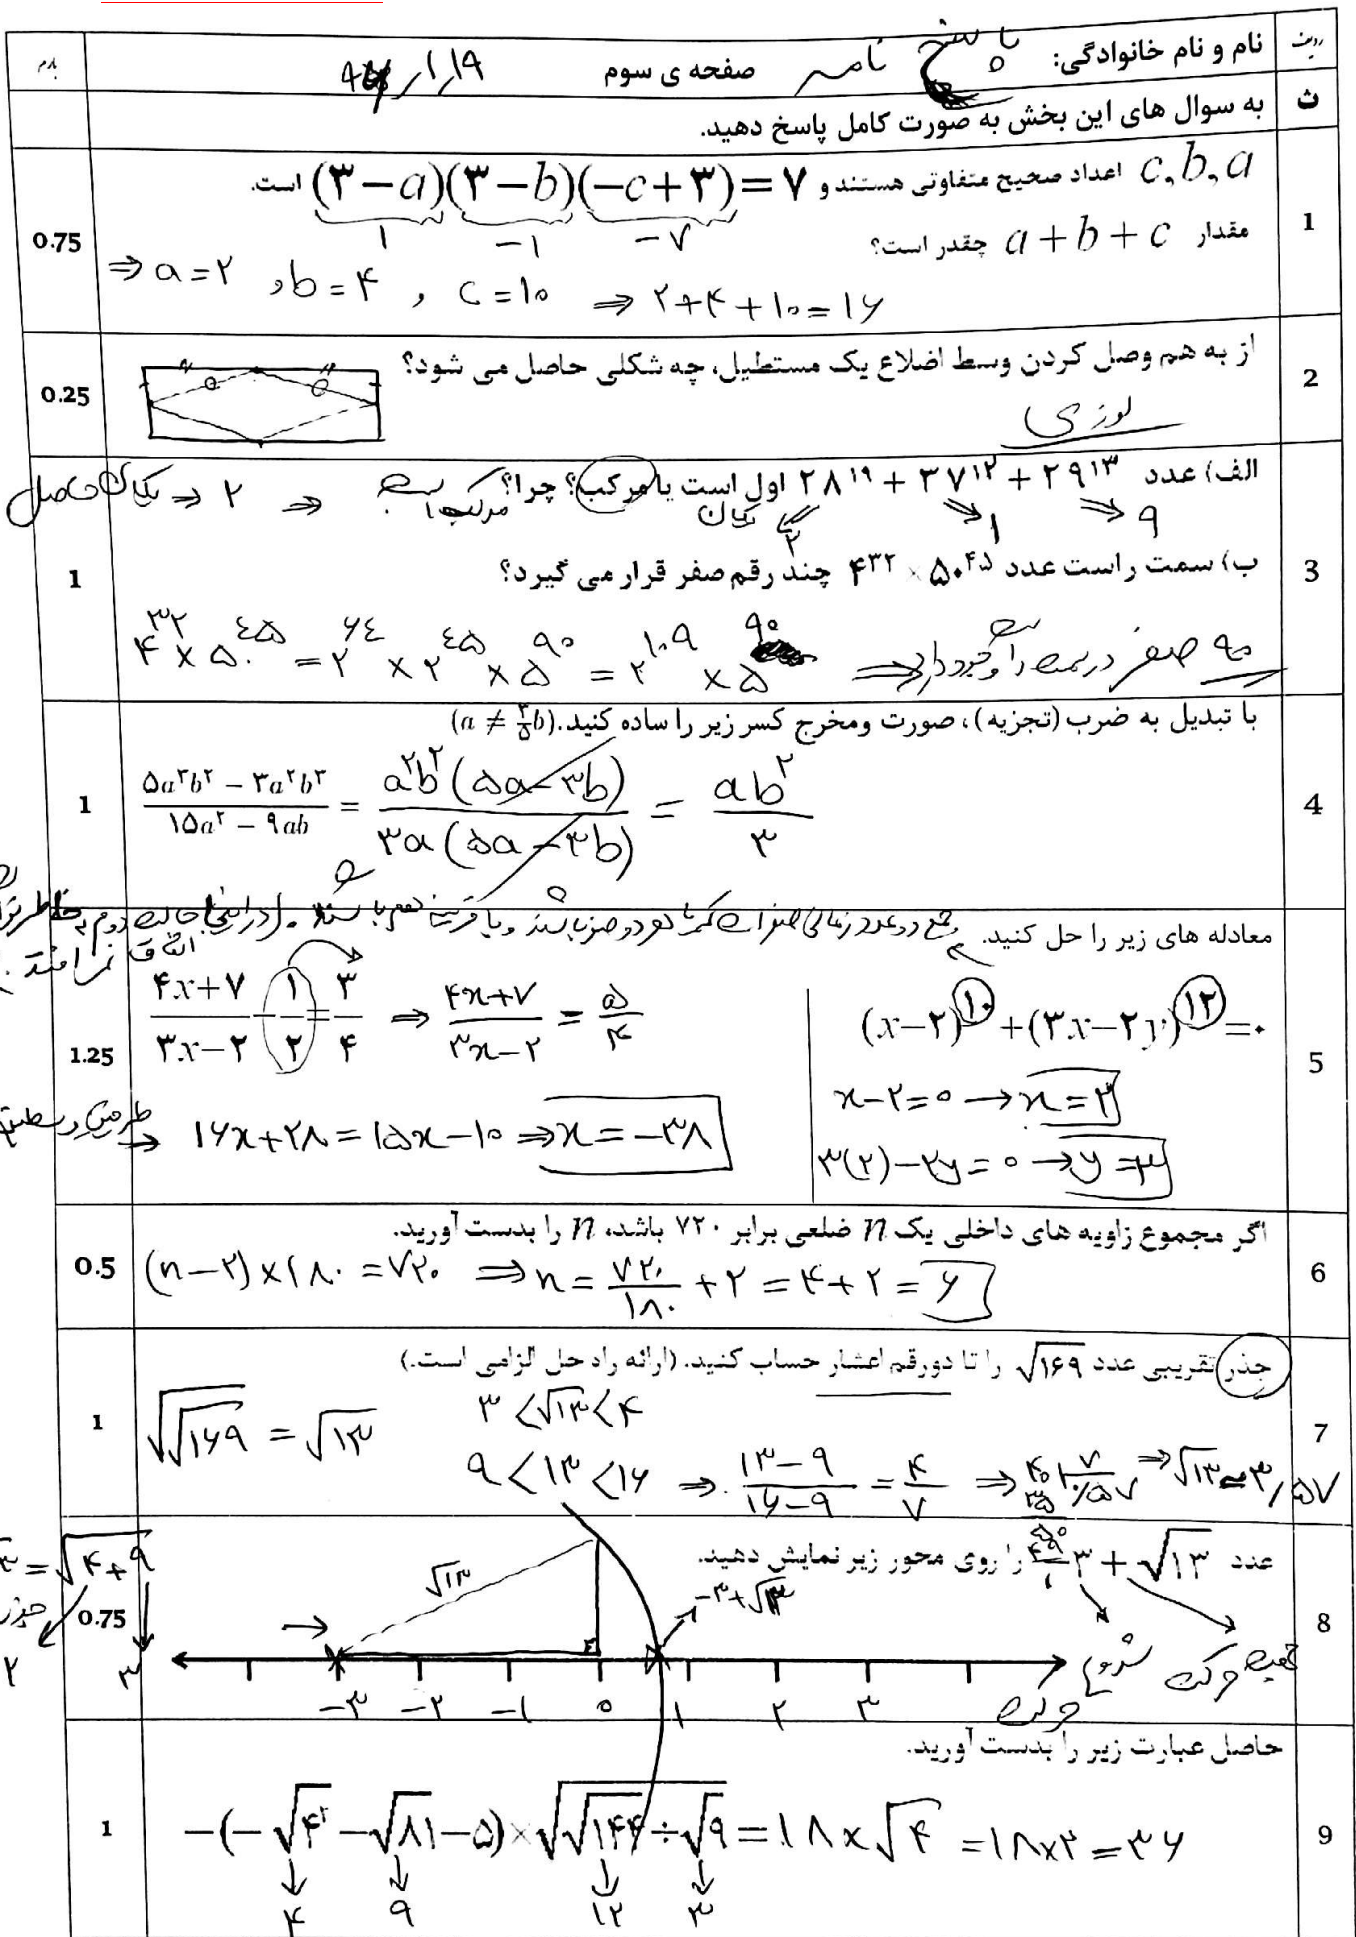 ردیف
نام و نام خانوادگی: پاسخ نامه صفحه ی سوم
بارم
ث به سوال های این بخش به صورت کامل پاسخ دهید.
1 c,b,a اعداد صحیح متفاوتی هستند و (۳−a)(۳−b)(−c+۳)=۷ است.
۱ −۱ −۷
مقدار a+b+c چقدر است؟
0.75
⇒ a=۲ , b=۴ , c=۱۰ ⇒ ۲+۴+۱۰=۱۶
2 از به هم وصل کردن وسط اضلاع یک مستطیل، چه شکلی حاصل می شود؟
0.25
لوزی
3 الف) عدد ۲۸^۱۹ + ۳۷^۱۲ + ۲۹^۱۳ اول است یا مرکب؟ چرا؟ مرکب است ⇐ ۲ ⇐ یکان حاصل
یکان ۲ ۱ ۹
ب) سمت راست عدد ۴^۳۲ × ۵۰^۴۵ چند رقم صفر قرار می گیرد؟
1
۴^۳۲ × ۵۰^۴۵ = ۲^۶۴ × ۲^۴۵ × ۵^۹۰ = ۲^۱۰۹ × ۵^۹۰ ⇒ ۹۰ صفر در سمت راست وجود دارد
4 با تبدیل به ضرب (تجزیه)، صورت ومخرج کسر زیر را ساده کنید. (a ≠ ۳/۵ b)
1
(۵a^۳b^۲ − ۳a^۲b^۳)/(۱۵a^۲ − ۹ab) = a^۲b^۲(۵a−۳b)/۳a(۵a−۳b) = ab^۲/۳
5 معادله های زیر را حل کنید.
جمع دو عدد زمانی صفر است که یا هر دو صفر باشند و یا قرینه هم باشند. (در اینجا حالت دوم به خاطر
اتفاق نمی افتد.
1.25
(x−۲)^۱۰ + (۳x−۲y)^۱۲ = ۰
x−۲=۰ → x=۲
۳(۲)−۲y=۰ → y=۳
(۴x+۷)/(۳x−۲) − ۱/۲ = ۳/۴ ⇒ (۴x+۷)/(۳x−۲) = ۵/۴
طرفین وسطین ⇒ ۱۶x+۲۸=۱۵x−۱۰ ⇒ x=−۳۸
6 اگر مجموع زاویه های داخلی یک n ضلعی برابر ۷۲۰ باشد، n را بدست آورید.
0.5
(n−۲)×۱۸۰=۷۲۰ ⇒ n=۷۲۰/۱۸۰+۲=۴+۲=۶
7 جذر تقریبی عدد √۱۶۹ را تا دورقم اعشار حساب کنید. (ارائه راه حل الزامی است.)
1
√√۱۶۹ = √۱۳
۳<√۱۳<۴
۹<۱۳<۱۶ ⇒ (۱۳−۹)/(۱۶−۹) = ۴/۷ ⇒ ۴۰ | ۷ ۰/۵۷ ⇒ √۱۳≃۳/۵۷
۳۵
۵۰
۴۹
۱
8 عدد −۳+√۱۳ را روی محور زیر نمایش دهید.
0.75
=√۴+۹
جذر
۲ ۳
√۱۳
−۳+√۱۳
شروع حرکت
جهت حرکت
−۳ −۲ −۱ ۰ ۱ ۲ ۳
9 حاصل عبارت زیر را بدست آورید.
1
−(−√۴^۲ −√۸۱−۵)×√(√۱۴۴÷√۹)=۱۸×√۴=۱۸×۲=۳۶
۴ ۹ ۱۲ ۳